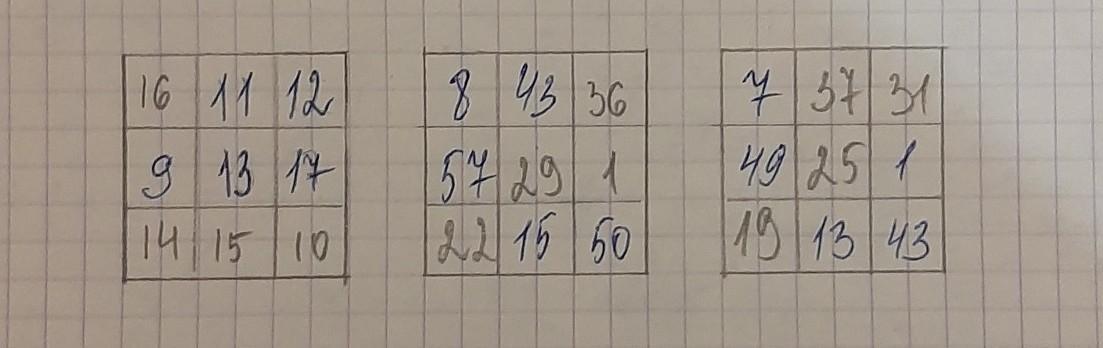 16 11 12 8 43 36 7 37 31
9 13 17 57 29 1 49 25 1
14 15 10 22 15 50 19 13 43